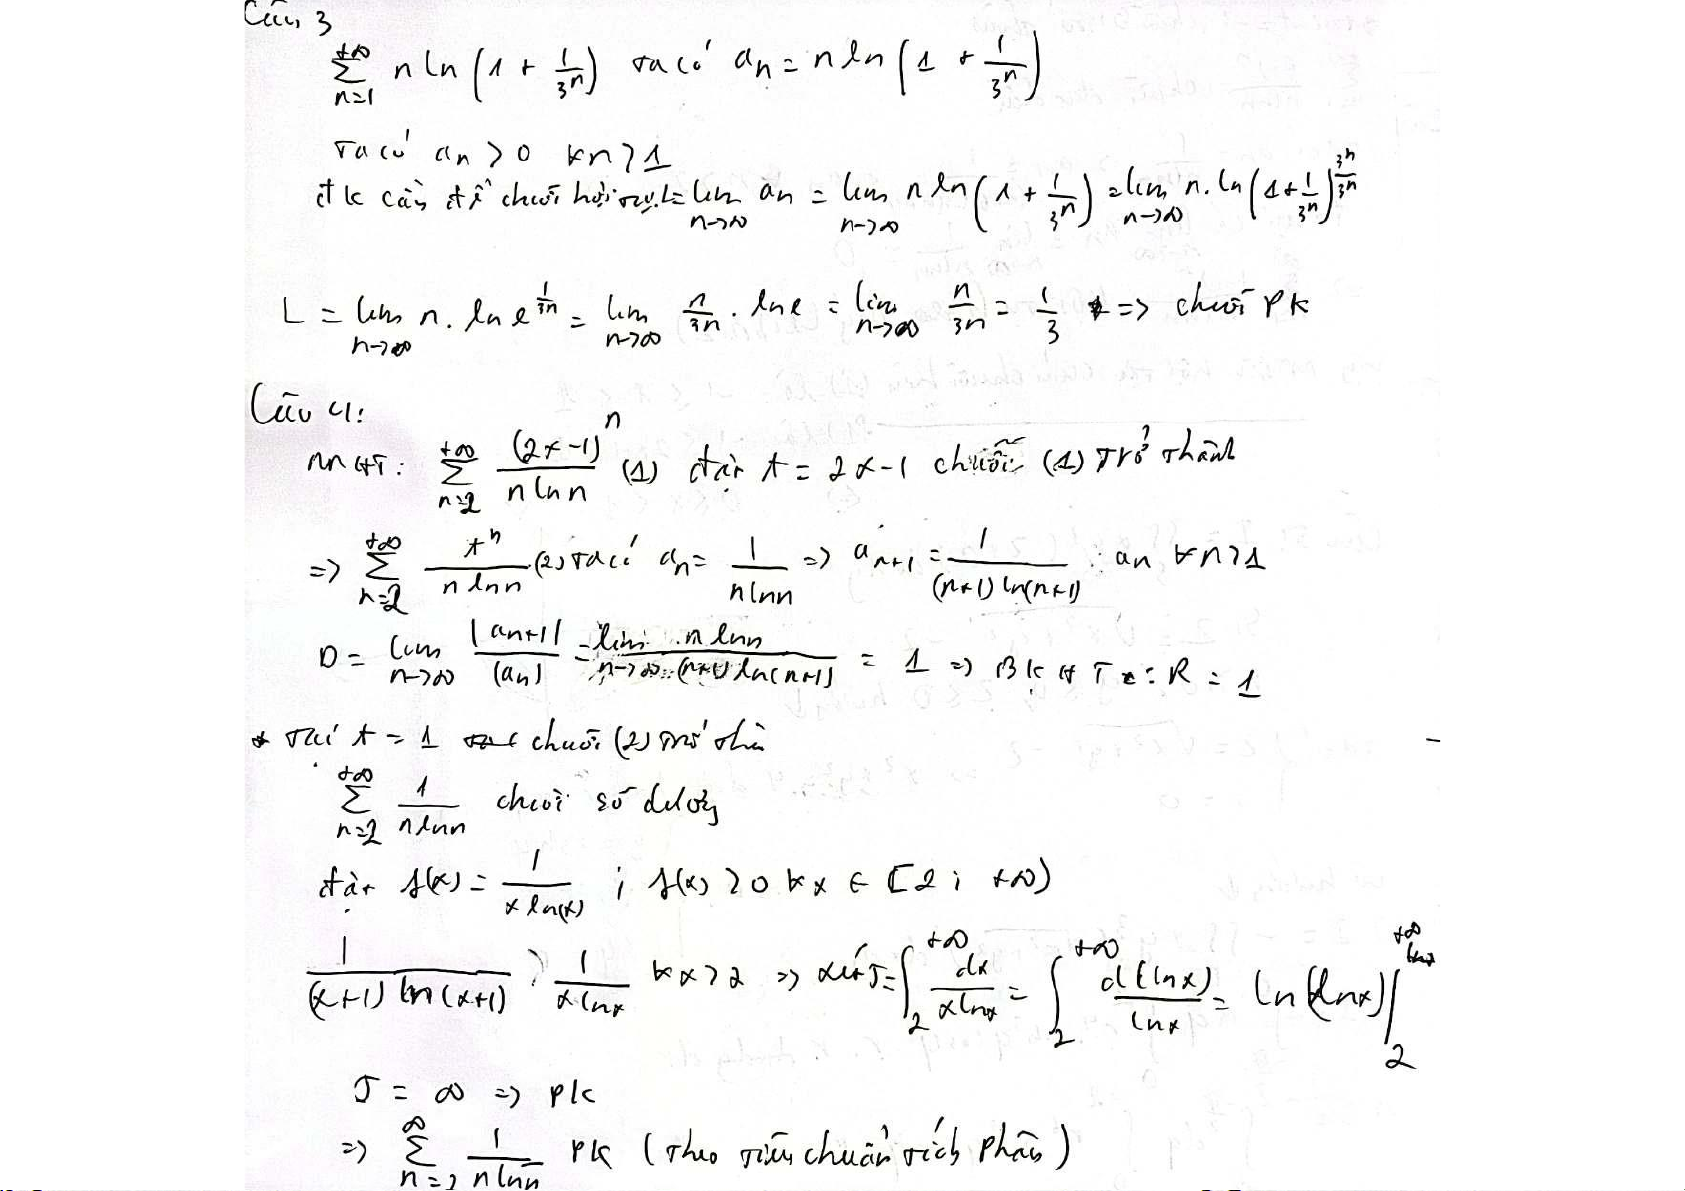 Câu 3
∑_{n=1}^{+∞} n ln (1 + 1/3^n) ta có a_n = n ln (1 + 1/3^n)
Ta có a_n > 0 ∀n ≥ 1
đk cần để chuỗi hội tụ L = lim_{n→∞} a_n = lim_{n→∞} n ln (1 + 1/3^n) = lim_{n→∞} n. ln (1 + 1/3^n)^{3^n/3^n}
L = lim_{n→∞} n. ln e^{1/3n} = lim_{n→∞} n/3n . ln e = lim_{n→∞} n/3n = 1/3 => chuỗi PK
Câu 4:
MHT: ∑_{n=2}^{+∞} (2x-1)^n / (n ln n) (1) đặt t = 2x-1 chuỗi (1) trở thành
=> ∑_{n=2}^{+∞} t^n / (n ln n) (2) ta có a_n = 1/(n ln n) => a_{n+1} = 1/((n+1) ln(n+1)) : a_n ∀n ≥ 1
D = lim_{n→∞} |a_{n+1}|/(a_n) = lim_{n→∞} n ln n / ((n+1) ln(n+1)) = 1 => BKHT : R = 1
* Tại t = 1 chuỗi (2) trở thà
∑_{n=2}^{+∞} 1/(n ln n) chuỗi số dương
đặt f(x) = 1/(x ln(x)) ; f(x) ≥ 0 ∀x ∈ [2; +∞)
1/((x+1) ln(x+1)) 1/(x ln x) ∀x ≥ 2 => xét J = ∫_2^{+∞} dx/(x ln x) = ∫_2^{+∞} d(ln x)/ln x = ln(ln x)|_2^{+∞}
J = ∞ => PK
=> ∑_{n=2}^{∞} 1/(n ln n) PK (Theo tiêu chuẩn tích phân)